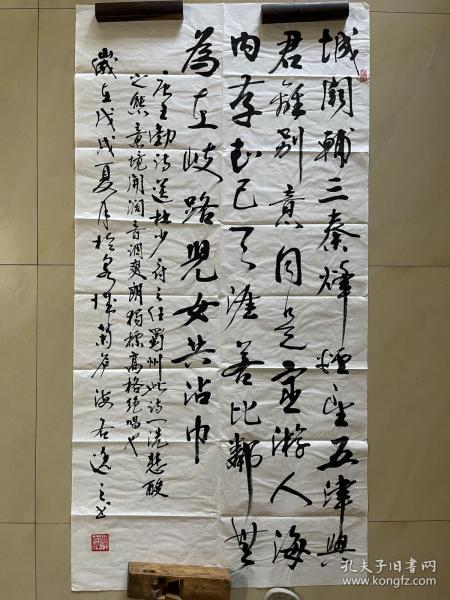 城闕輔三秦烽煙望五津與
君離別意同是宦游人海
内存知己天涯若比鄰無
為在歧路兒女共沾巾
唐王勃詩送杜少府之任蜀州此詩一洗悲酸
之態意境開闊音調爽朗獨標高格絕唱也
歲在戊戌夏月於泉城蘭居海右逸之書
孔夫子旧书网
www.kongfz.com